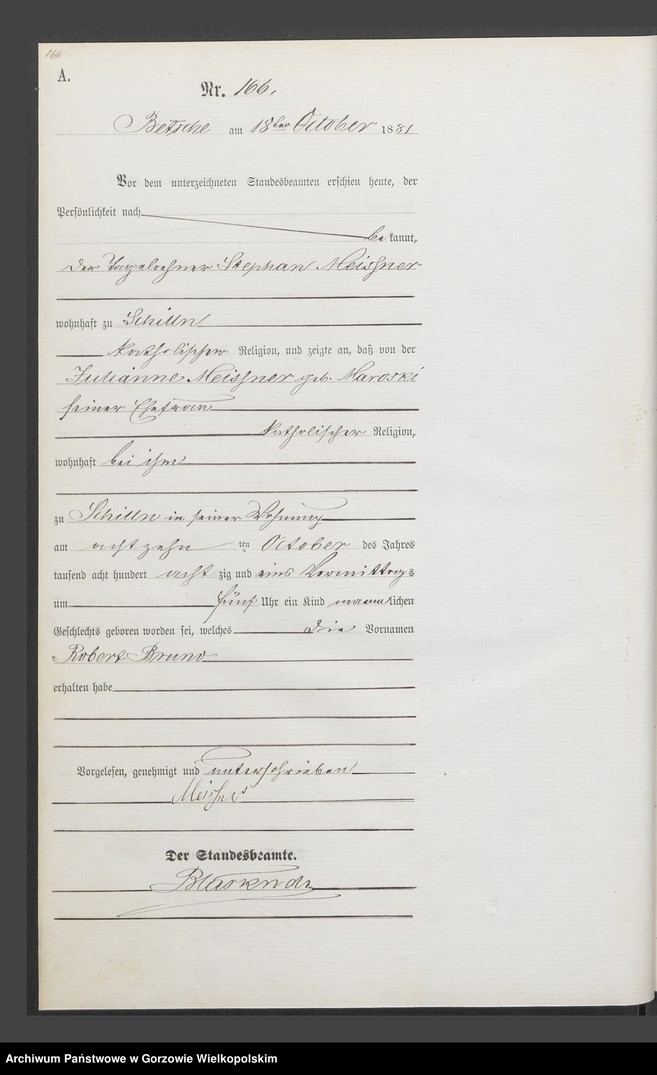 166
A.
Nr. 166.
Betsche am 18ten October 1881
Vor dem unterzeichneten Standesbeamten erschien heute, der
Persönlichkeit nach
be kannt,
der Tagelöhner Stephan Meißner
wohnhaft zu Schilln
katholischer Religion, und zeigte an, daß von der
Julianne Meißner geb. Maroski
seiner Ehefrau
katholischer Religion,
wohnhaft bei ihm
zu Schilln in seiner Wohnung
am achtzehn ten October des Jahres
tausend acht hundert acht zig und eins Vormittags
um fünf Uhr ein Kind maennlichen
Geschlechts geboren worden sei, welches die Vornamen
Robert Bruno
erhalten habe
Vorgelesen, genehmigt und unterschrieben
Meißner
Der Standesbeamte.
Archiwum Państwowe w Gorzowie Wielkopolskim